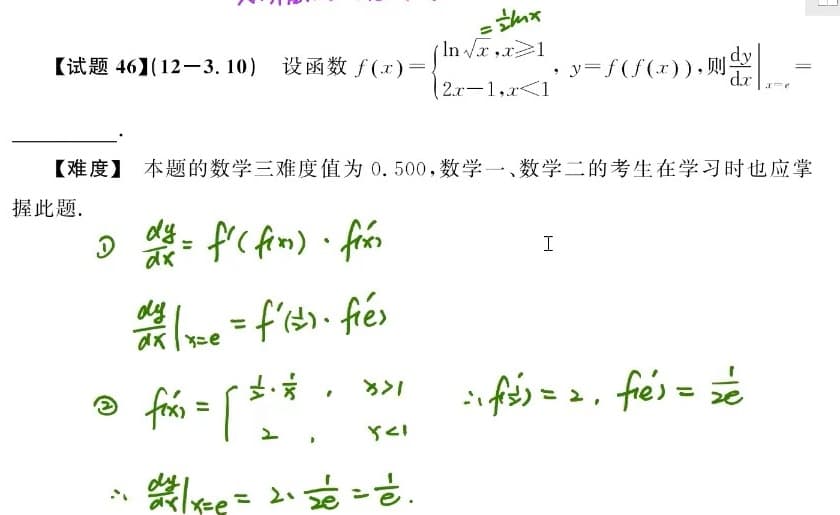 = ½lnx
【试题 46】(12-3.10) 设函数 f(x)={ln√x,x≥1 2x-1,x<1, y=f(f(x)),则dy/dx|x=e =
______.
【难度】 本题的数学三难度值为 0.500,数学一、数学二的考生在学习时也应掌
握此题.
① dy/dx = f'(f(x)) · f'(x)
dy/dx|x=e = f'(½) · f'(e)
② f'(x) = { ½·1/x , x>1 2 , x<1 ∴ f'(½) = 2, f'(e) = 1/2e
∴ dy/dx|x=e = 2· 1/2e = 1/e.